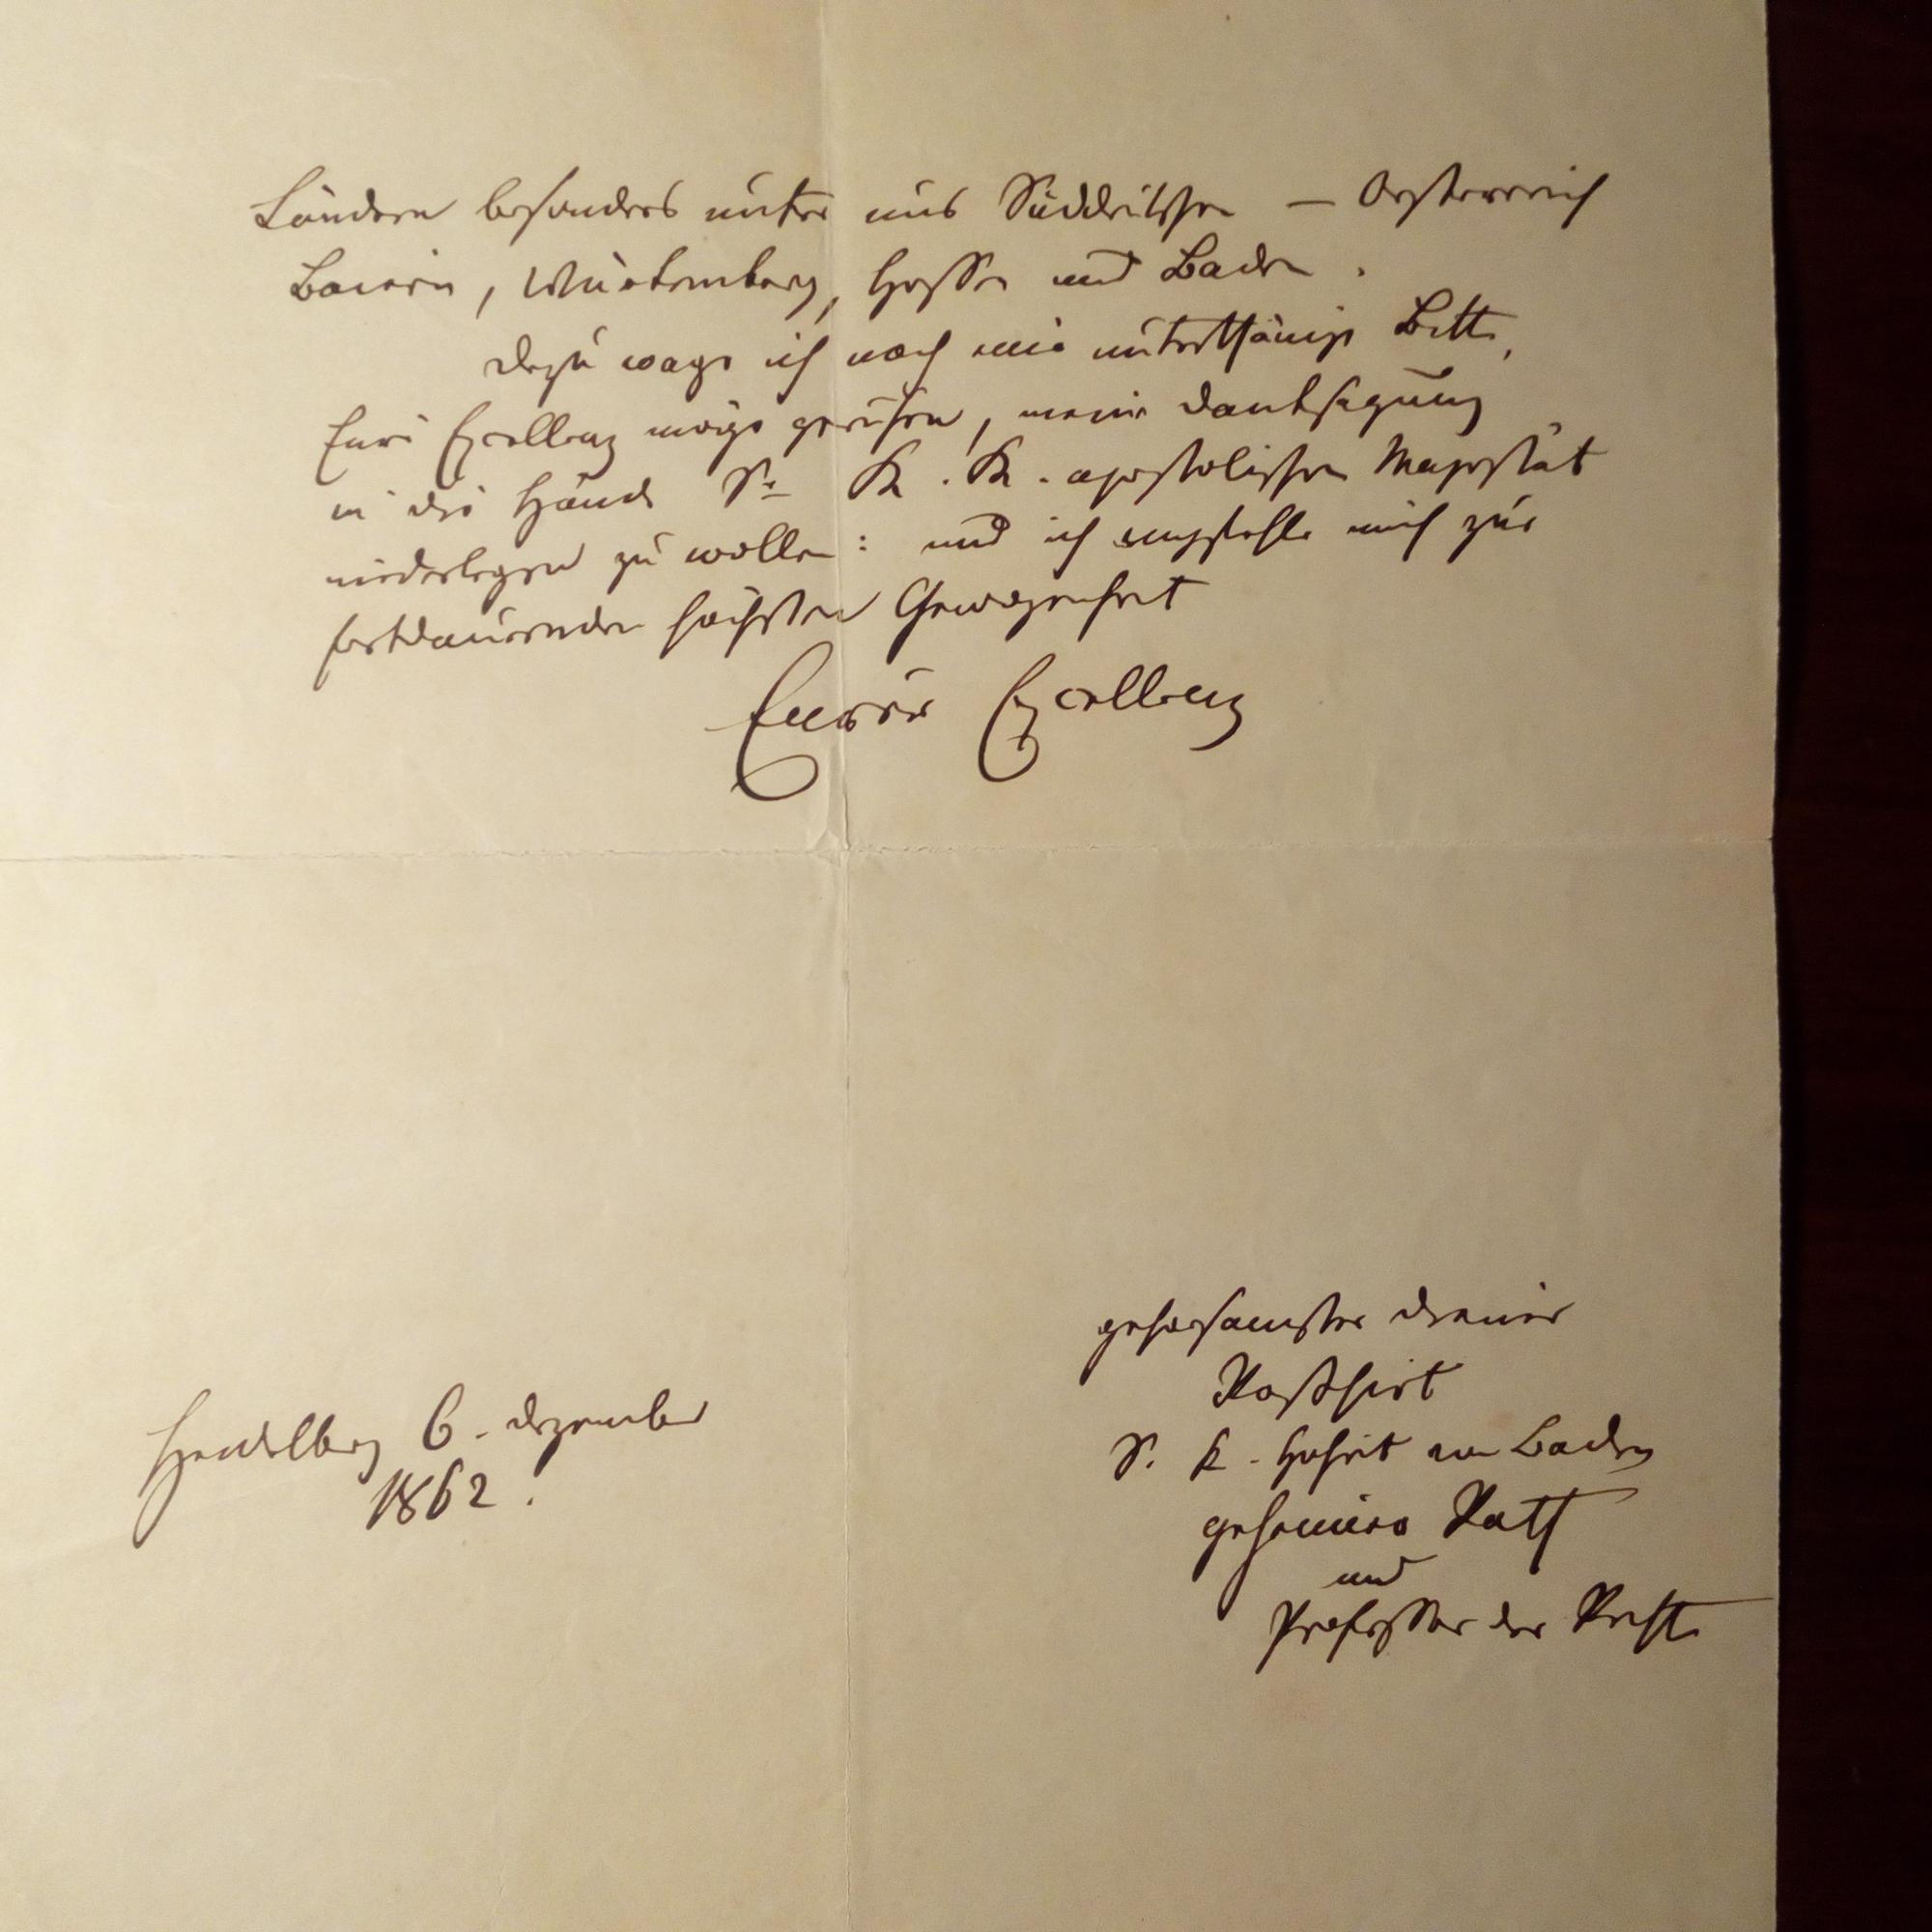 Ländern besonders unter uns Süddeutschen — Oesterreich
Baiern, Würtemberg, Hessen und Baden.
Dazu wage ich noch eine unterthänige Bitte,
Eure Excellenz möge geruhen, meine Danksagung
in die Hände Sr K. K. apostolischen Majestät
niederlegen zu wollen: und ich empfehle mich zur
fortdauernden höchsten Gewogenheit
Eurer Excellenz
gehorsamster Diener
Roßhirt
S. K. Hoheit von Baden
geheimer Rath
und
Professor der Rechte
Heidelberg 6. Dezember
1862.